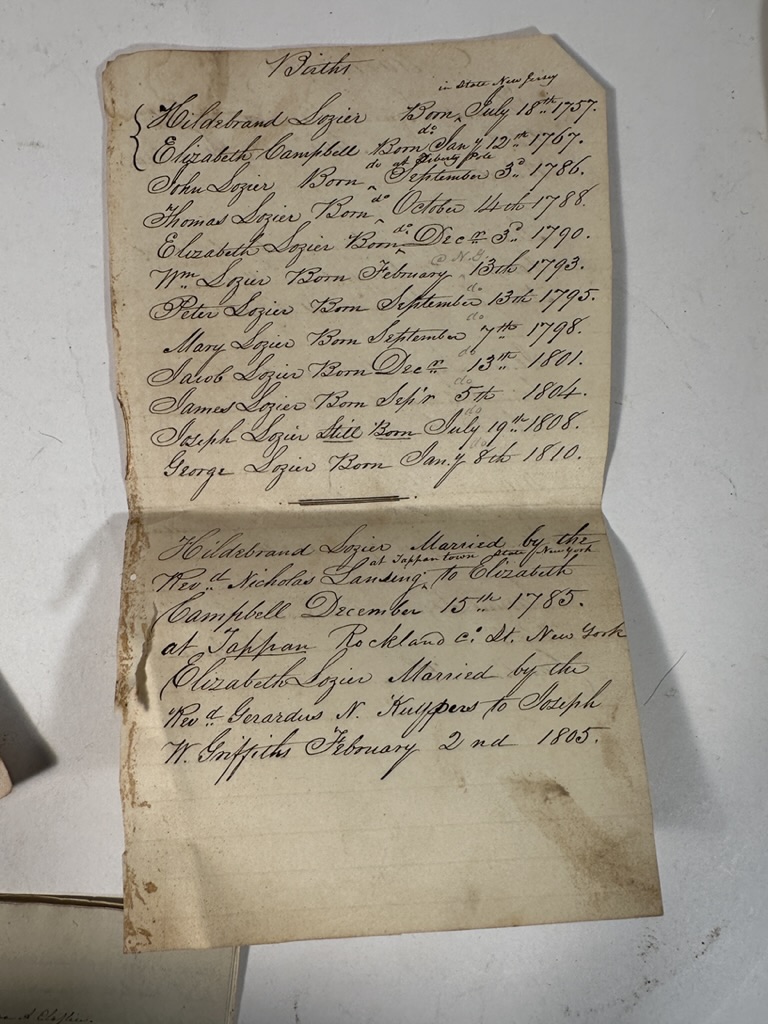 Births
in State New Jersey
Hildebrand Lozier Born ^ July 18th 1757.
do
Elizabeth Campbell Born ^ Jany 12th 1767.
do at Liberty Pole
John Lozier Born ^ September 3d 1786.
do
Thomas Lozier Born ^ October 4th 1788.
do
Elizabeth Lozier Born ^ Decr 3d 1790.
@ N.Y.
Wm Lozier Born February 13th 1793.
do
Peter Lozier Born September 13th 1795.
do
Mary Lozier Born September 7th 1798.
do
Jacob Lozier Born Decr 13th 1801.
do
James Lozier Born Sep'r 5th 1804.
do
Joseph Lozier Still Born July 19th 1808.
do
George Lozier Born Jan.y 8th 1810.
Hildebrand Lozier Married by the
at Tappantown State New York
Revd Nicholas Lansing ^ to Elizabeth
Campbell December 15th 1785.
at Tappan Rockland Co. St. New York
Elizabeth Lozier Married by the
Revd Gerardus N. Kuypers to Joseph
W. Griffiths February 2nd 1805.